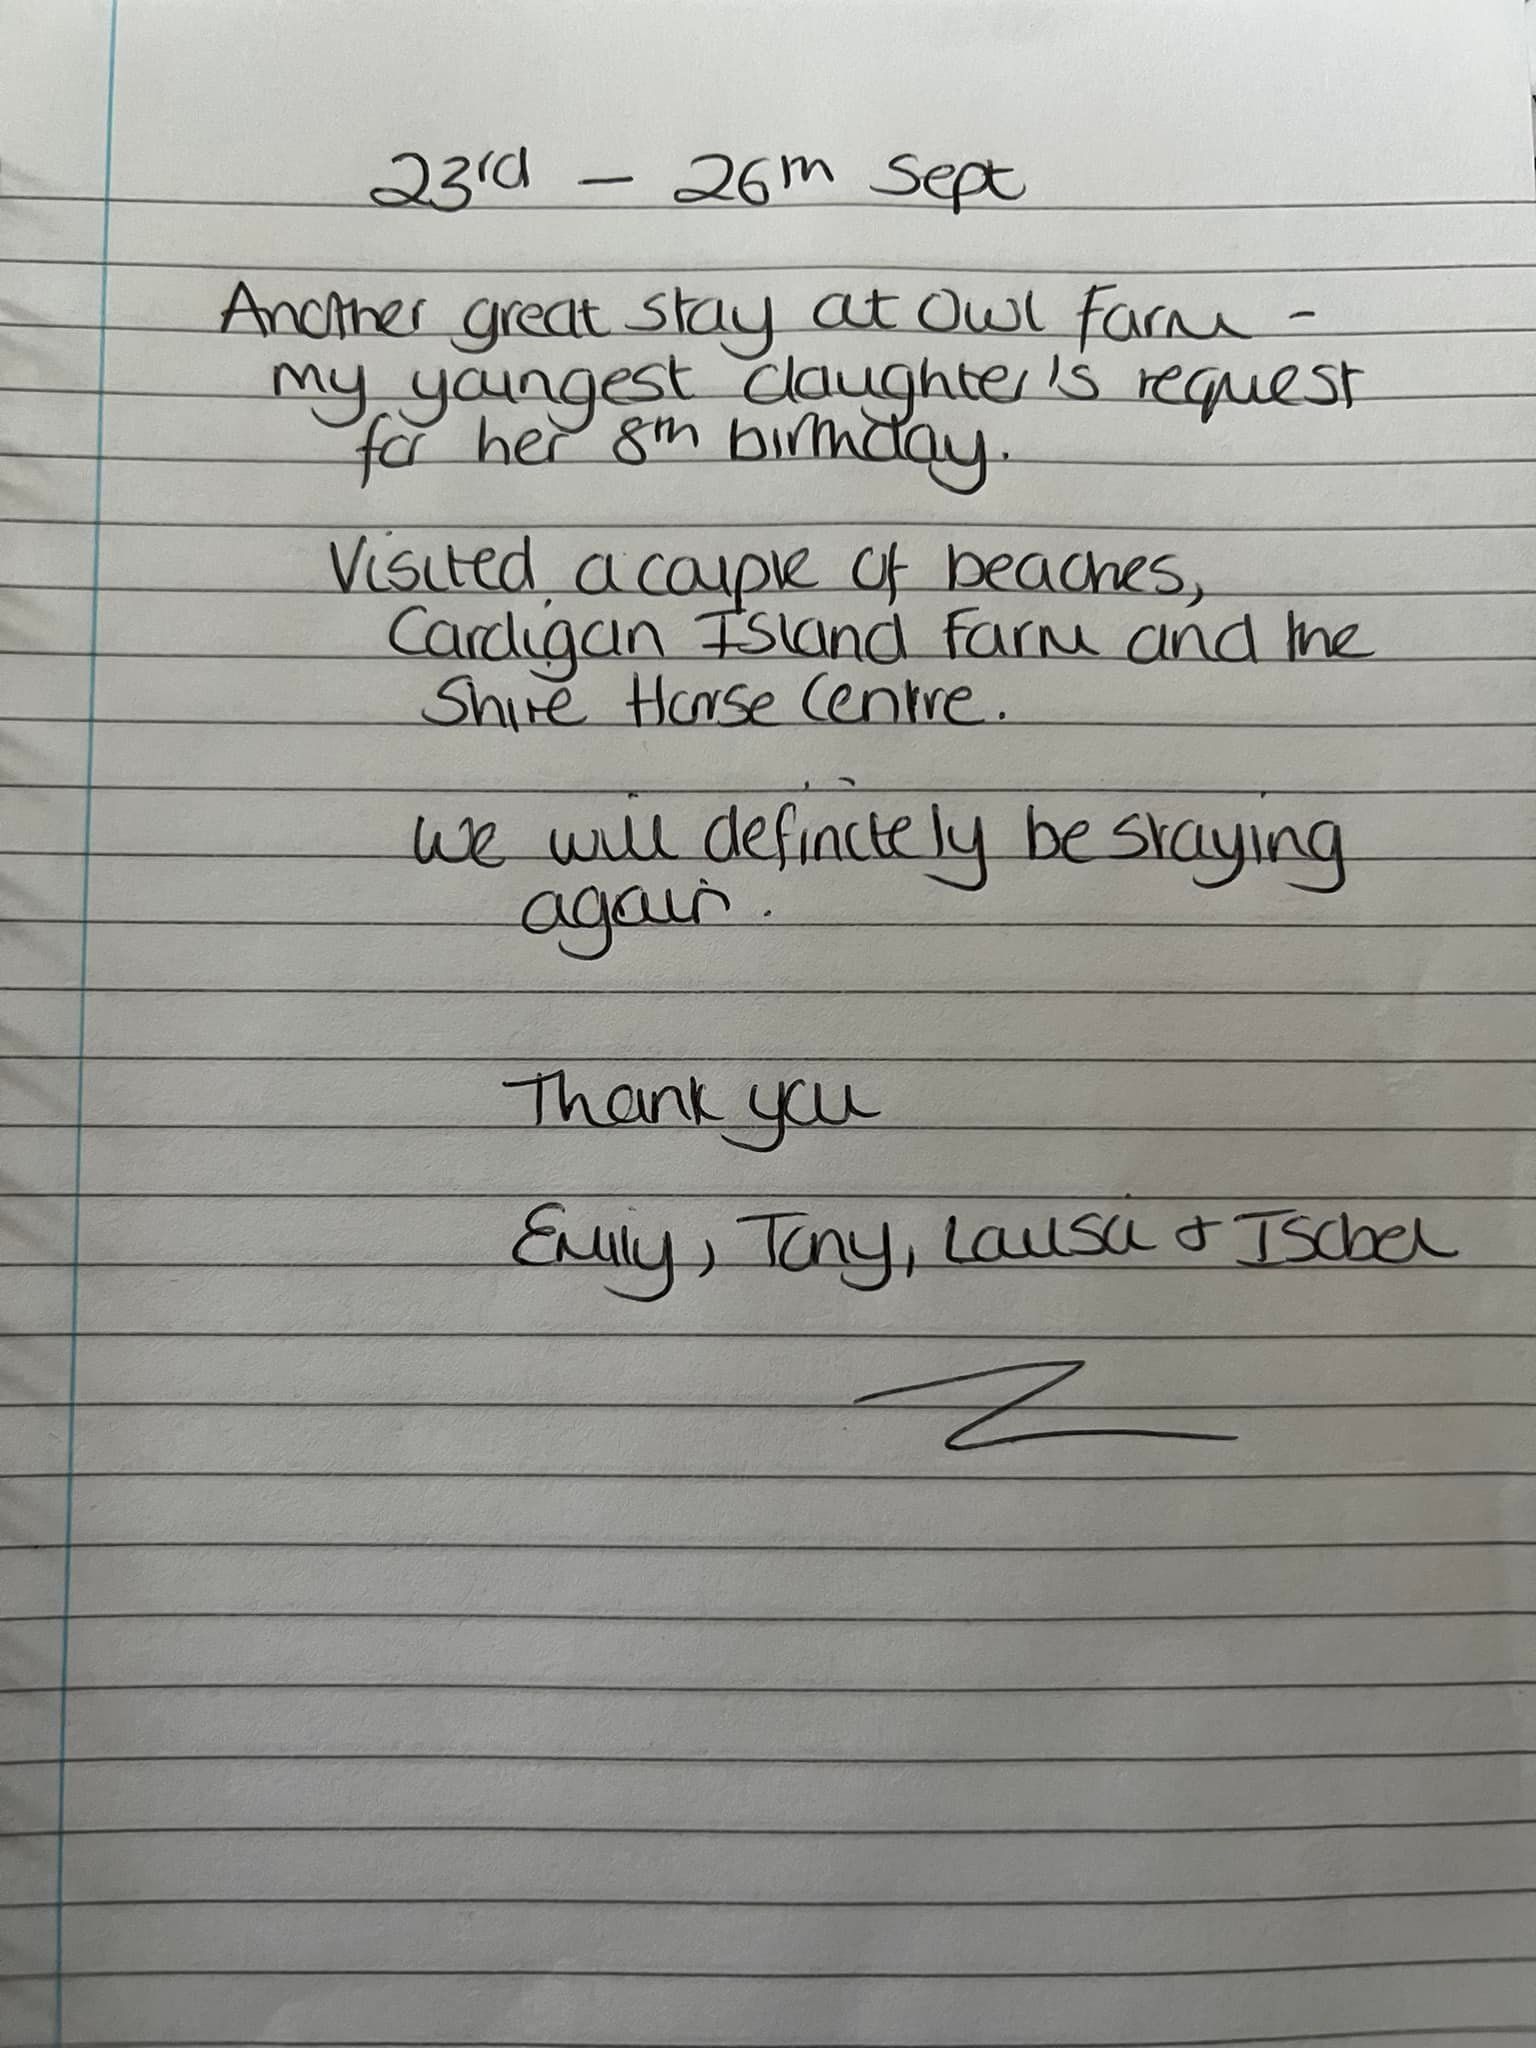 23rd – 26th Sept
Another great stay at Owl Farm –
my youngest daughter's request
for her 8th birthday.
Visited a couple of beaches,
Cardigan Island Farm and the
Shire Horse Centre.
We will definitely be staying
again.
Thank you
Emily, Tony, & Isobel